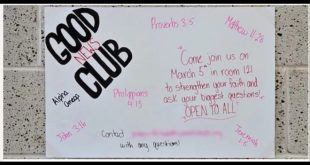 GOOD
NEWS
CLUB
Proverbs 3:5
Matthew 11:28
"Come join us on
March 5th in room 121
to strengthen your faith and
ask your biggest questions!
OPEN TO ALL"
Alpha
Omega
Philippians
4:13
John 3:16
Jeremiah
1:5
Contact
with any questions!